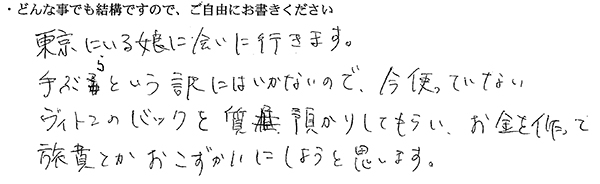 ・どんな事でも結構ですので、ご自由にお書きください
東京にいる娘に会いに行きます。
手ぶらという訳にはいかないので、今使っていない
ヴィトンのバックを質預かりしてもらい、お金を作って
旅費とかおこずかいにしようと思います。